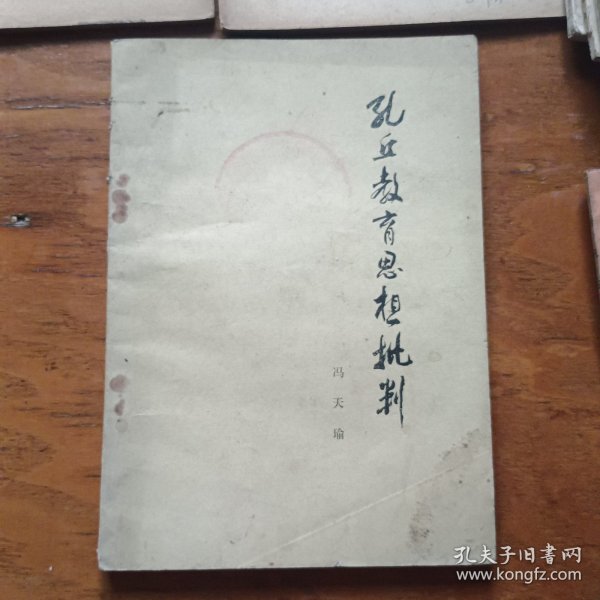 孔丘教育思想批判
冯天瑜
孔夫子旧书网
www.kongfz.com